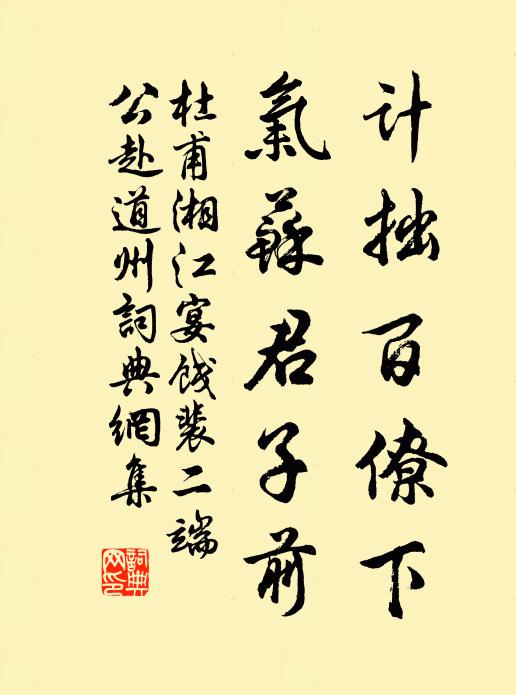 計拙百僚下
氣蘇君子前
杜甫湘江宴餞裴二端
公赴道州詞典網集
詞典網印